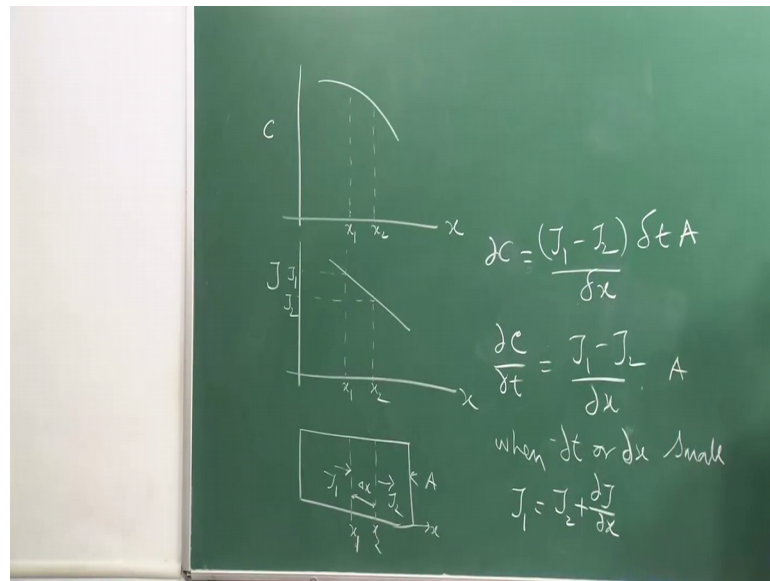 C
x₁ x₂ x
J J₁
J₂
x₁ x₂ x
J₁ Δx J₂ A
x₁ x₂ x
∂C = (J₁ - J₂) δt A / δx
∂C/δt = J₁ - J₂ / ∂x . A
when ∂t or ∂x small
J₁ = J₂ + ∂J/∂x